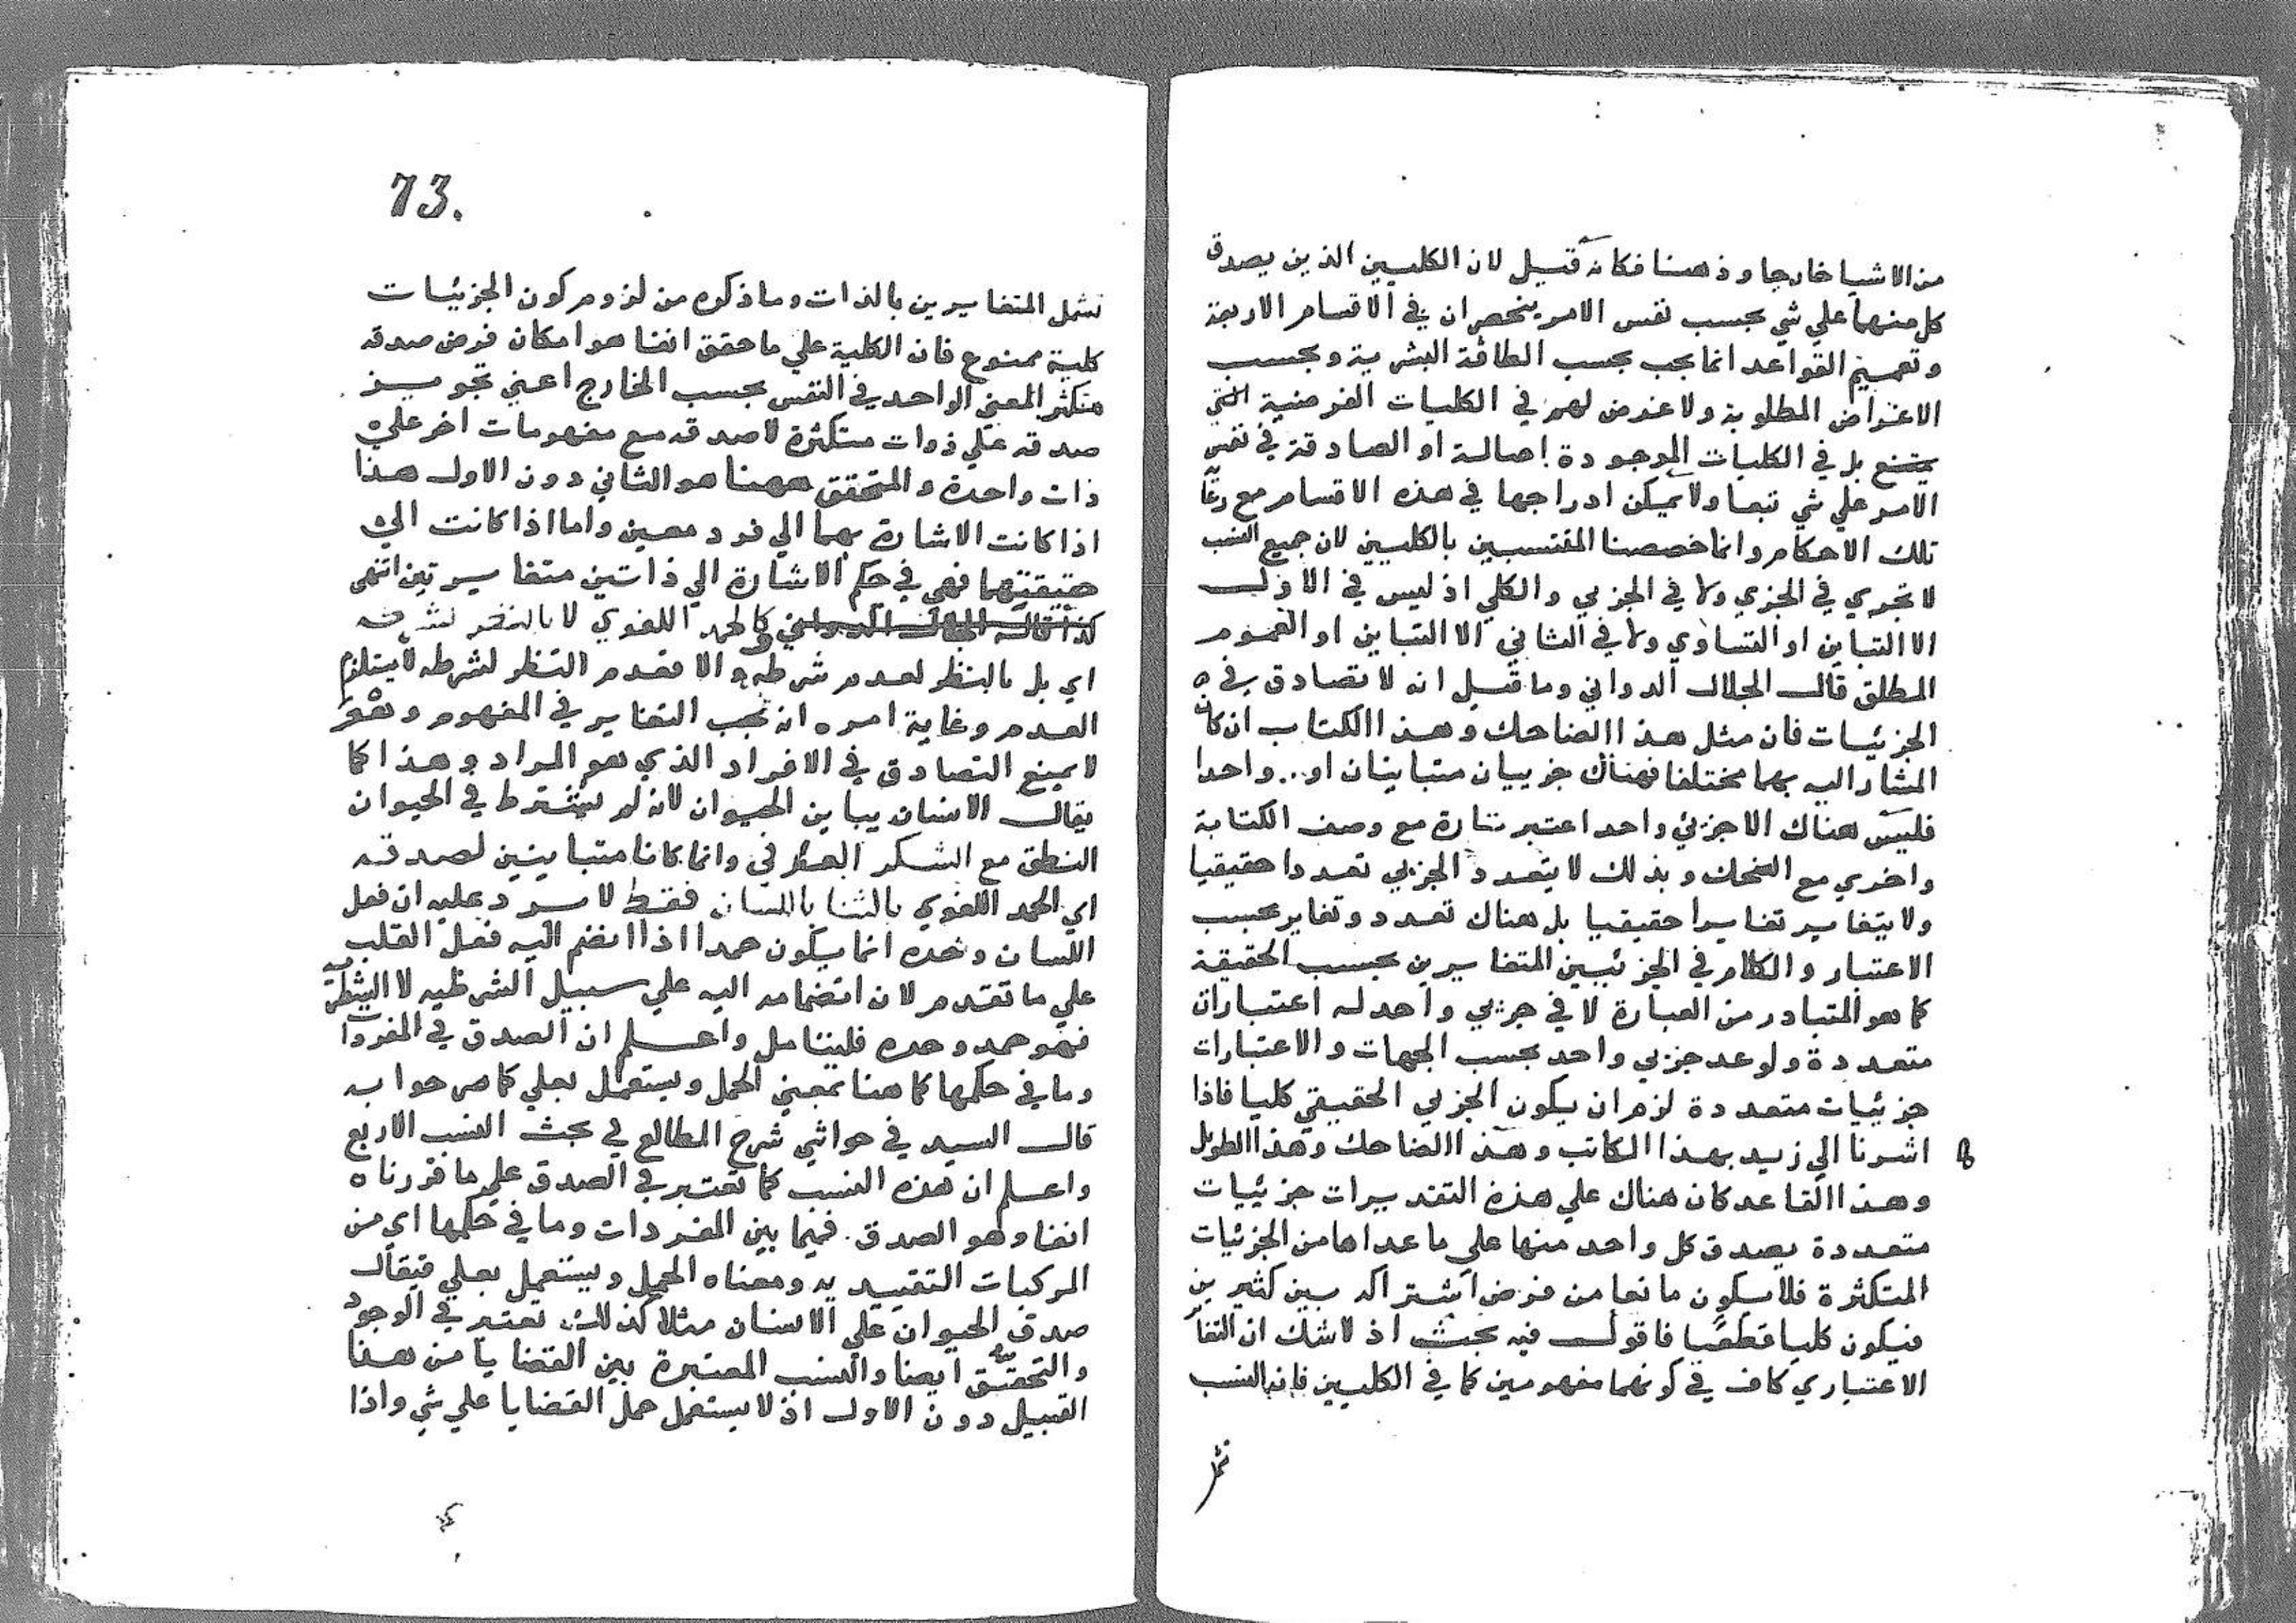 من الاشيا خارجا وذهنا فكانه قيل لان الكليين الذين يصدق
كل منهما علي شي بحسب نفس الامر ينحصران في الاقسام الاربعة
وتعميم القواعد انما يجب بحسب الطاقة البشرية وبحسب
الاغراض المطلوبة ولا غرض لهم في الكليات الفرضية التي
يمتنع بل في الكليات الموجودة اصالة او الصادقة في نفس
الامر علي شي تبعا ولا يمكن ادراجها في هذه الاقسام مع
تلك الاحكام وانما خصصنا المنتسبين بالكليين لان جميع النسب
لا تجري في الجزي ولا في الجزيي والكلي اذ ليس في الاول
الا التباين او التساوي ولا في الثاني الا التباين او العموم
المطلق قال الجلال الدواني وما قيل انه لا تصادق في
الجزئيات فان مثل هذا الضاحك وهذا الكتاب ان كان
المشار اليه بهما مختلفا فهناك جزييان متباينان او .. واحدا
فليس هناك الا جزئي واحد اعتبر تارة مع وصف الكتابة
واخري مع الضحك وبذلك لا يتعدد الجزيي تعددا حقيقيا
ولا يتغاير تغايرا حقيقيا بل هناك تعدد وتغاير بحسب
الاعتبار والكلام في الجزئيين المتغايرين بحسب الحقيقة
كما هو المتبادر من العبارة لا في جزيي واحد له اعتبارات
متعددة ولو عد جزيي واحد بحسب الجهات والاعتبارات
جزئيات متعددة لزم ان يكون الجزيي الحقيقي كليا فاذا
اشرنا الي زيد بهذا الكاتب وهذا الضاحك وهذا الطويل
وهذا القاعد كان هناك علي هذه التقديرات جزئيات
متعددة يصدق كل واحد منها علي ما عداها من الجزئيات
المتكثرة فلا يكون مانعا من فرض اشتراكه بين كثيرين
فيكون كليا قطعا فاقول فيه بحث اذ لا شك ان التغا
الاعتباري كاف في كونهما مفهومين كما في الكليين فان النسب
تشمل
73.
تشمل المتغايرين بالذات وما ذكره من لزوم كون الجزئيات
كلية ممنوع فان الكلية علي ما حقق انفا هو امكان فرض صدقه
متكثر المعني الواحد في النفس بحسب الخارج اعني تجويز
صدقه علي ذوات متكثرة لا صدقه مع مفهومات اخر علي
ذات واحدة والمتحقق ههنا هو الثاني دون الاول هذا
اذا كانت الاشارة بهما الي فرد معين واما اذا كانت الي
حقيقتهما فهي في حكم الاشارة الي ذاتين متغايرتين انتهي
كذا قاله الجلال الدواني كالحمد اللغوي لا بالنظر لشرطه
اي بل بالنظر لعدم شرطه والا فعدم النظر لشرطه لا يستلزم
العدم وغاية امره انه يجب التغاير في المفهوم وهو
لا يمنع التصادق في الافراد الذي هو المراد وهذا كما
يقال الانسان يباين الحيوان لانه لم يشترط في الحيوان
النطق مع الشكر العرفي وانما كانا متباينين لصدقه
اي الحمد اللغوي بالثنا باللسان فقط لا يرد عليه ان فعل
اللسان وحده انما يكون حمدا اذا انضم اليه فعل القلب
علي ما تقدم لان انضمامه اليه علي سبيل الشرطيه لا الشطرية
فهو حمد وحده فليتامل واعلم ان الصدق في المفردات
وما في حكمها كما هنا بمعني الحمل ويستعمل بعلي كما صرحوا به
قال السيد في حواشي شرح المطالع في بحث النسب الاربع
واعلم ان هذه النسب كما تعتبر في الصدق علي ما قررناه
انفا وهو الصدق فيما بين المفردات وما في حكمها اي من
المركبات التقييديه ومعناه الحمل ويستعمل بعلي فيقال
صدق الحيوان علي الانسان مثلا كذلك تعتبر في الوجود
والتحقق ايضا والنسب المعتبرة بين القضايا من هذا
القبيل دون الاول اذ لا يستعمل حمل القضايا علي شي واذا